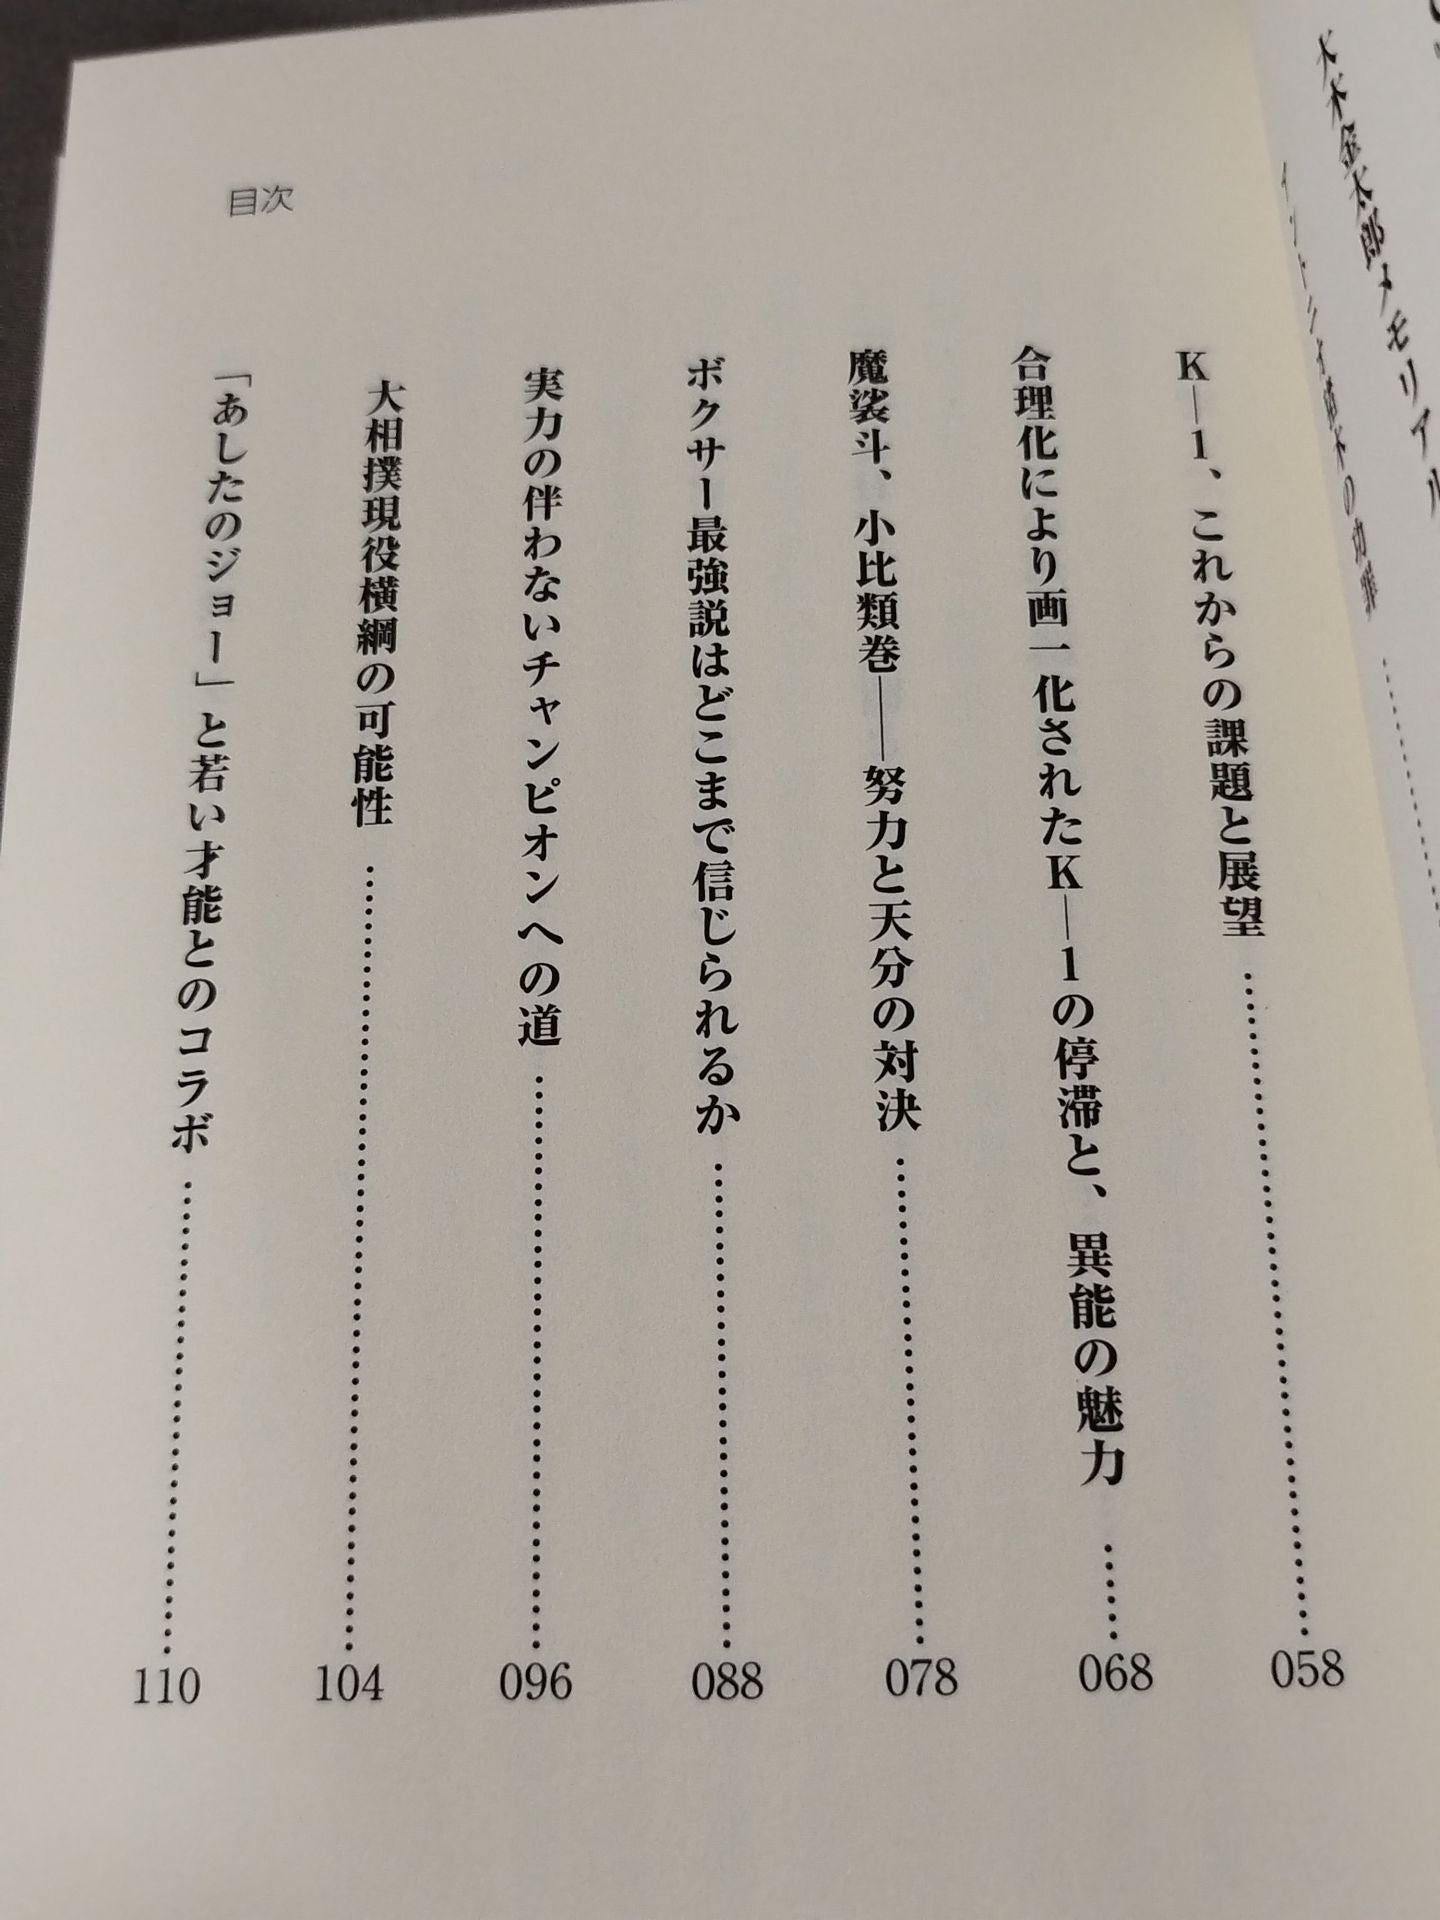 大木金太郎メモリアル
目次
K—1、これからの課題と展望……058
合理化により画一化されたK—1の停滞と、異能の魅力……068
魔裟斗、小比類巻——努力と天分の対決……078
ボクサー最強説はどこまで信じられるか……088
実力の伴わないチャンピオンへの道……096
大相撲現役横綱の可能性……104
「あしたのジョー」と若い才能とのコラボ……110